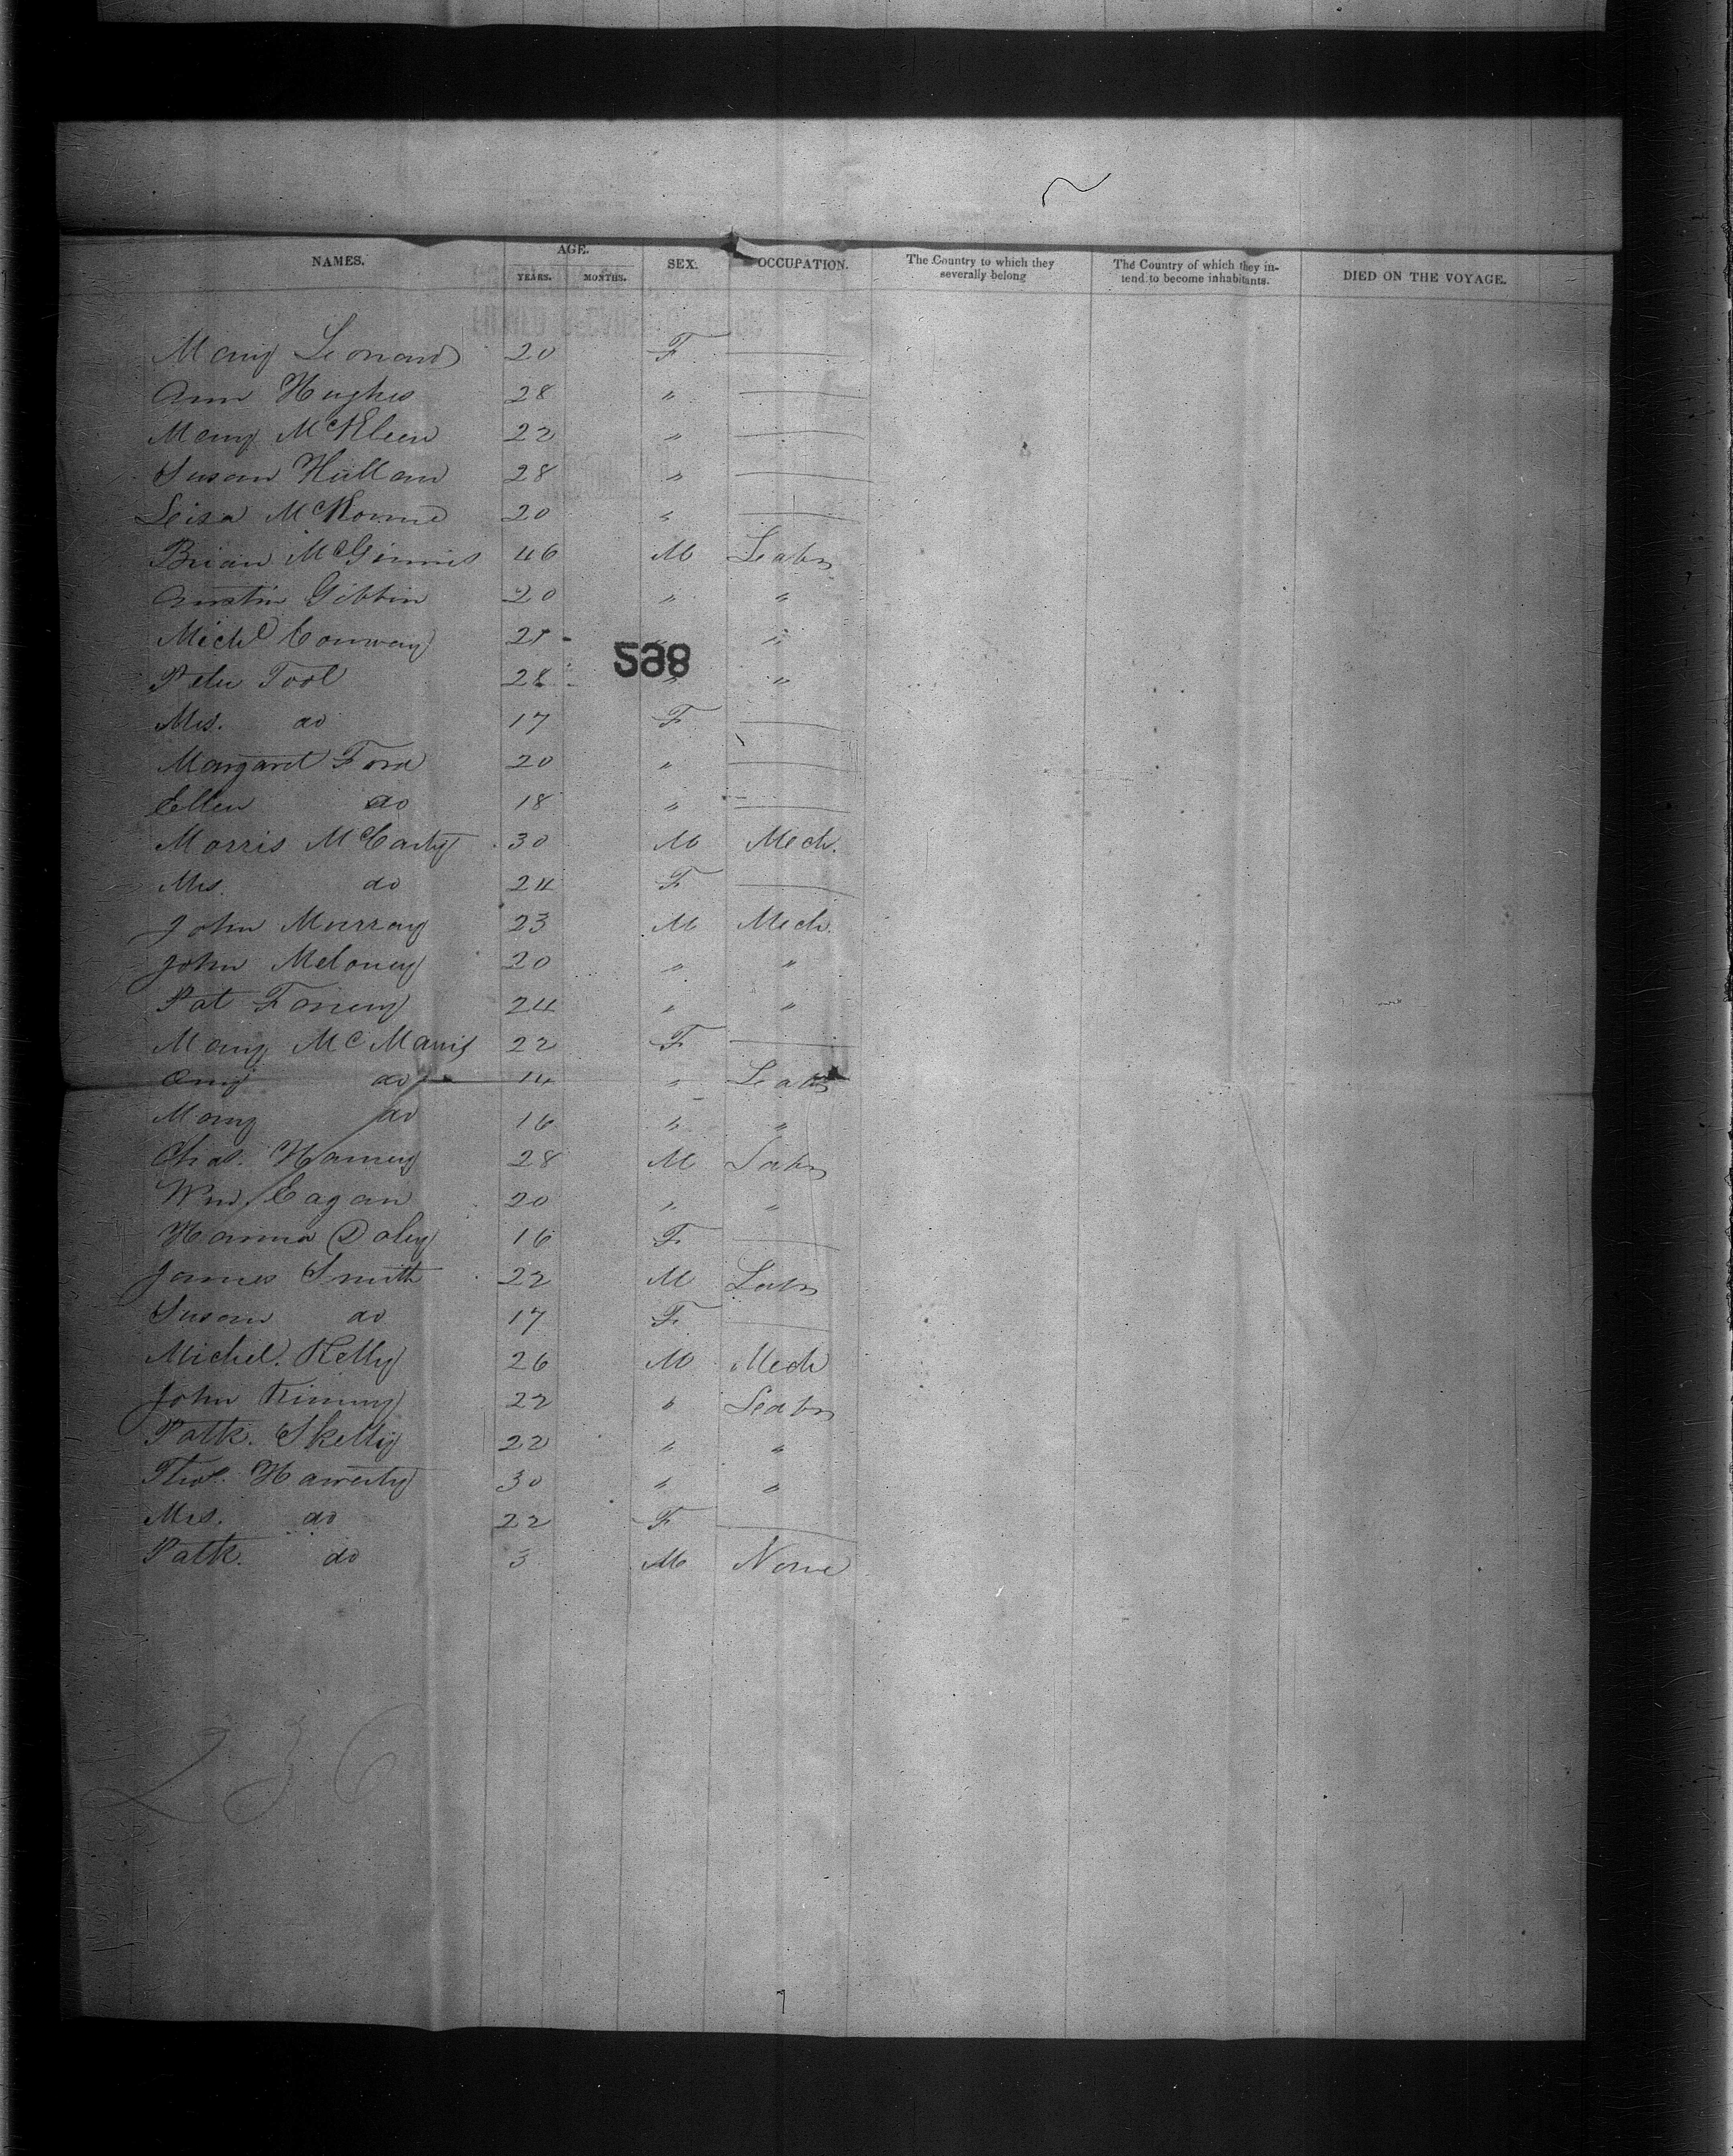 NAMES. AGE. YEARS. MONTHS. SEX. OCCUPATION. The Country to which they severally belong The Country of which they intend to become inhabitants. DIED ON THE VOYAGE.
Mary Leonard 20 F —
Ann Hughes 28 " —
Mary McKleen 22 " —
Susan Hallan 28 " —
Leisa 20 " —
Brian McGinnis 46 M Leabr
Austin Gibbin 20 " "
Michl Conway 21 " "
588
Peter Tool 28 " "
Mrs. do 17 F —
Margaret Ford 20 " —
Ellen do 18 " —
Morris McCarty 30 M Mech.
Mrs. do 24 F —
John Murray 23 M Mech.
John Meloney 20 " "
Pat 24 " "
Mary McManis 22 F —
do 14 " Leabr
Mary do 16 " "
Chas. Haney 28 M Labr
Wm. Eagan 20 " "
Hanna Doley 16 F —
James Smith 22 M Labr
Susan do 17 F —
Michel. Kelly 26 M Mech
John Kinny 22 " Leabr
Patk. Skelly 22 " "
Thos. Hawerty 30 " "
Mrs. do 22 F —
Patk. do 3 M None
236